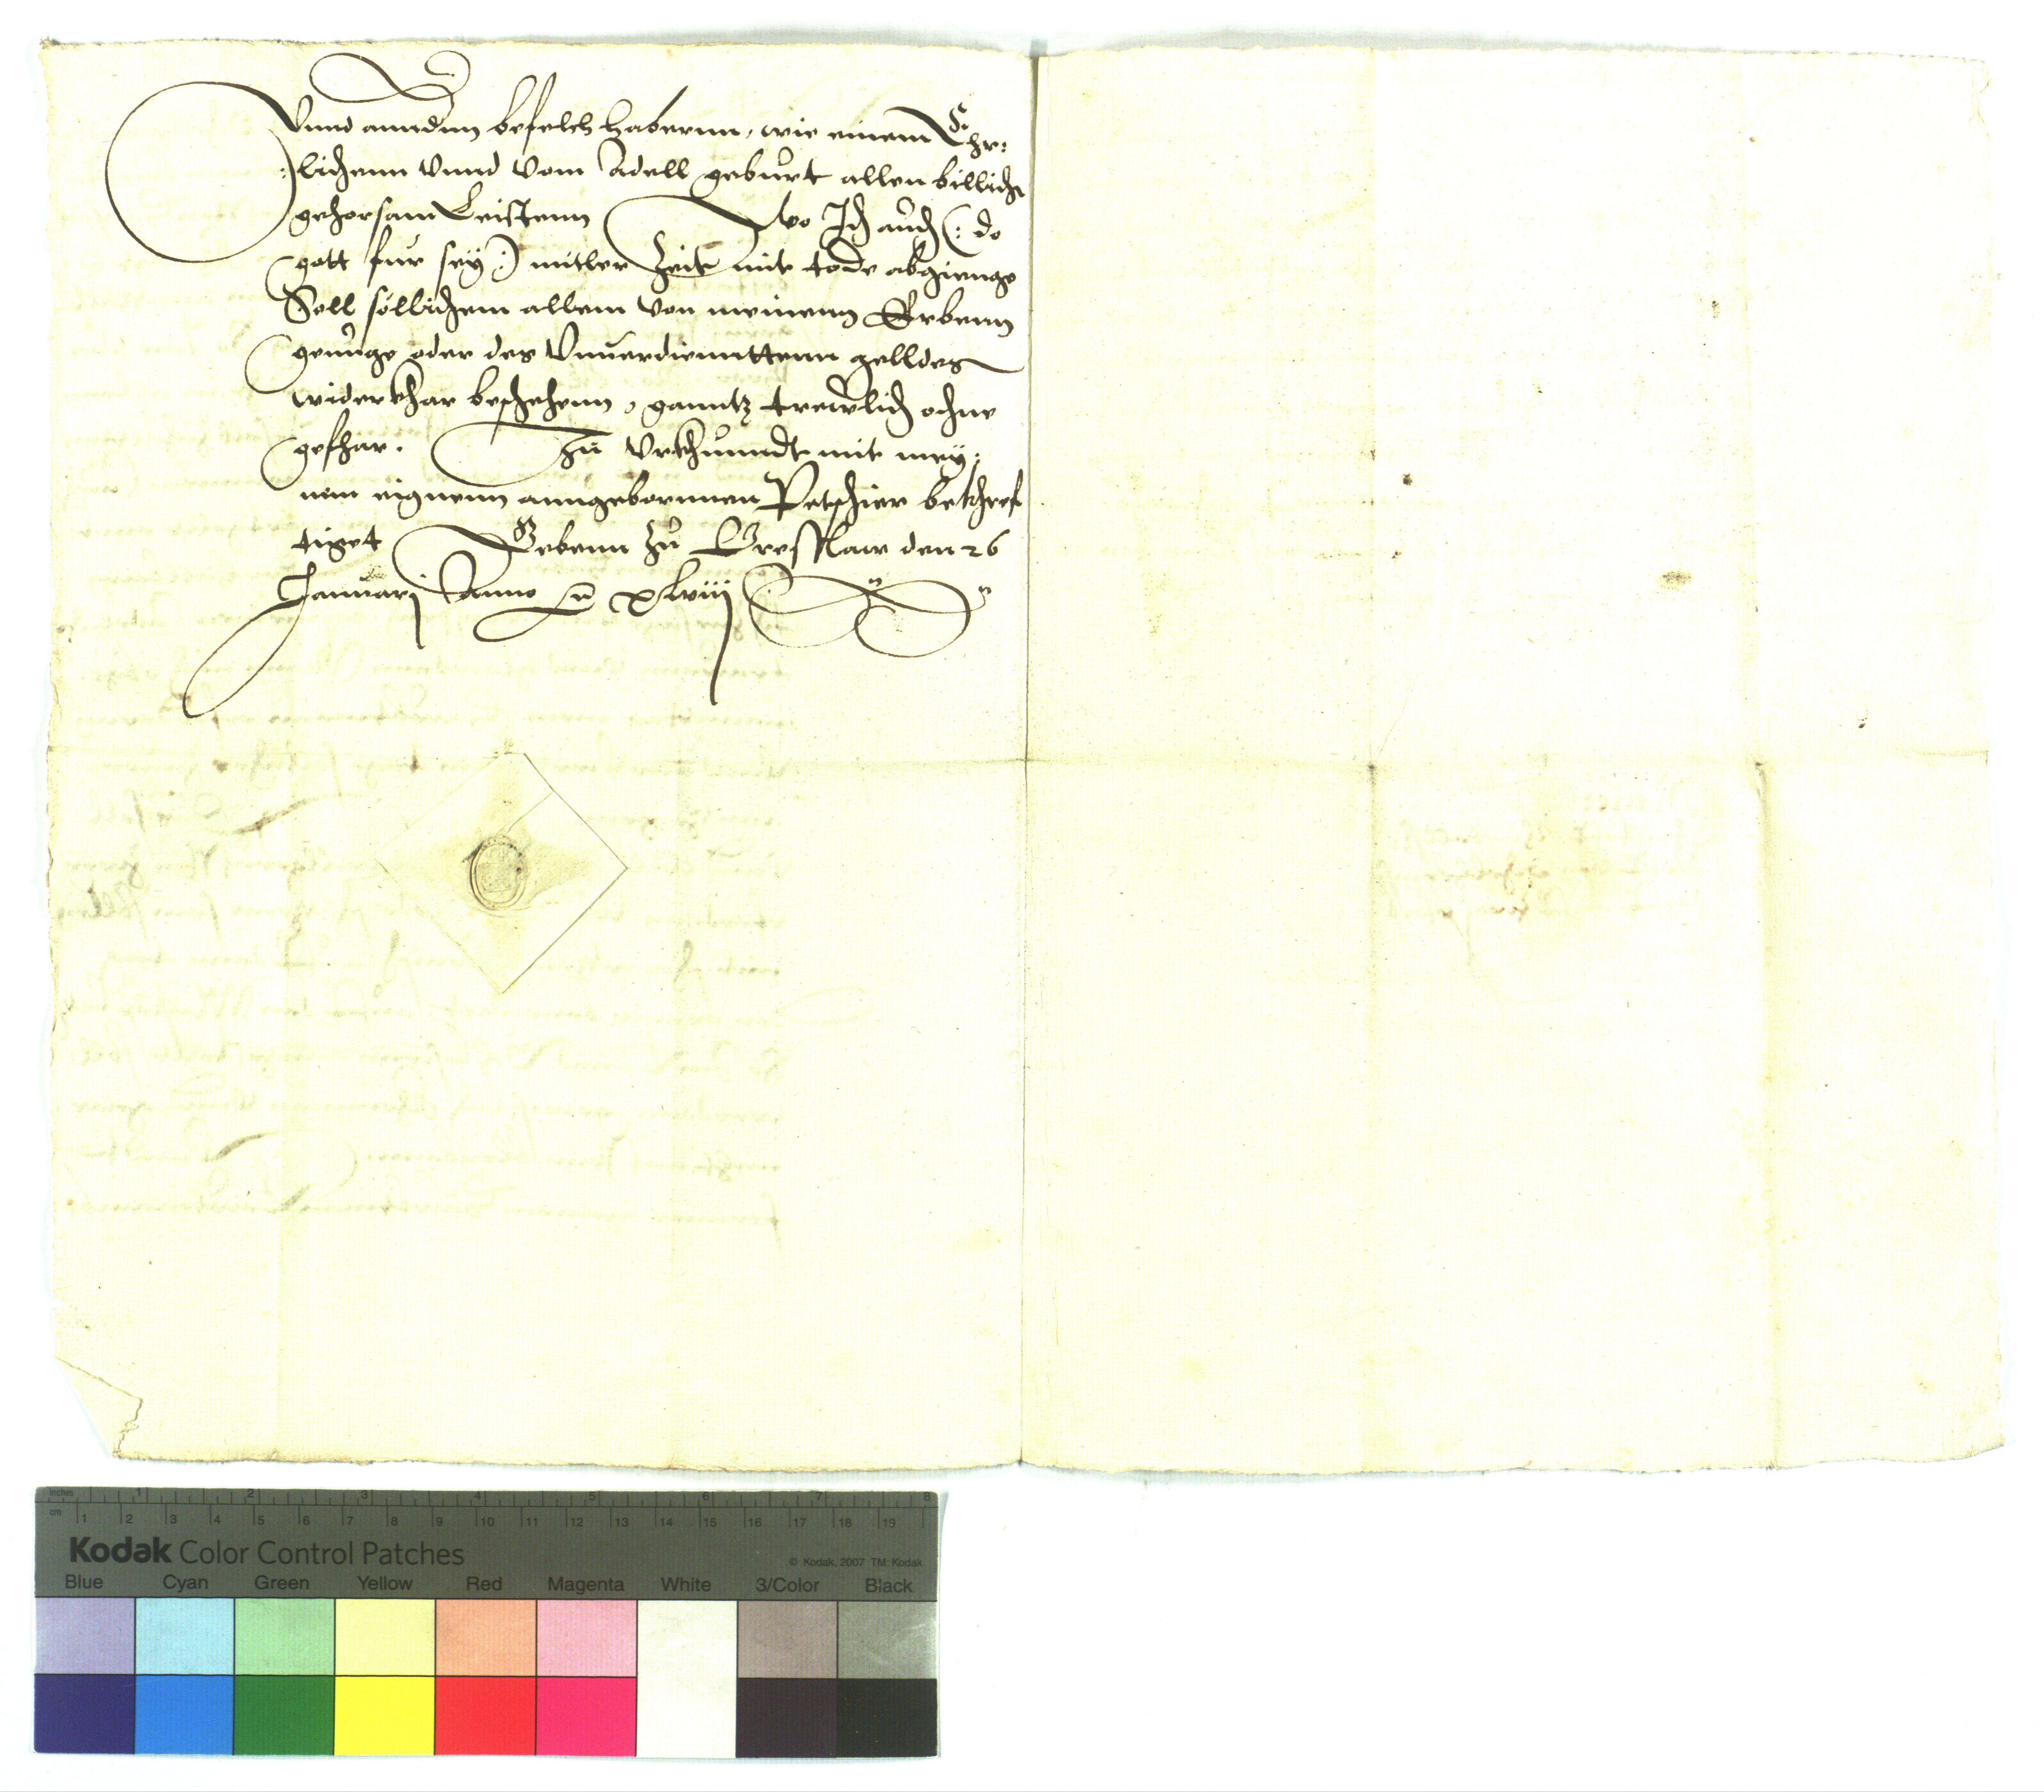 Vnnd annd͂nn befelch habernn, wie einem Ehr:
:lichenn Vnnd Vom Adell geburt allen billich͂
gehorsam Leistenn Wo Ich auch (: do
gott fur sey :) mitler Zeit mit tode abgienge
Soll sollichem allem von meinenn Erbenn
genuge oder des Vnuerdienttenn gelldes
widerkhar beschehenn, ganntz trewlich ohne
gefhar. Zu Vrkhunndt mit mey:
nem eignenn anngebornnen Petschier bekhref
tiget Gebenn Zu Bresslaw den 26
Januarj Anno xlviij
inches 1 2 3 4 5 6 7 8
cm 1 2 3 4 5 6 7 8 9 10 11 12 13 14 15 16 17 18 19
Kodak Color Control Patches © Kodak, 2007 TM: Kodak
Blue Cyan Green Yellow Red Magenta White 3/Color Black